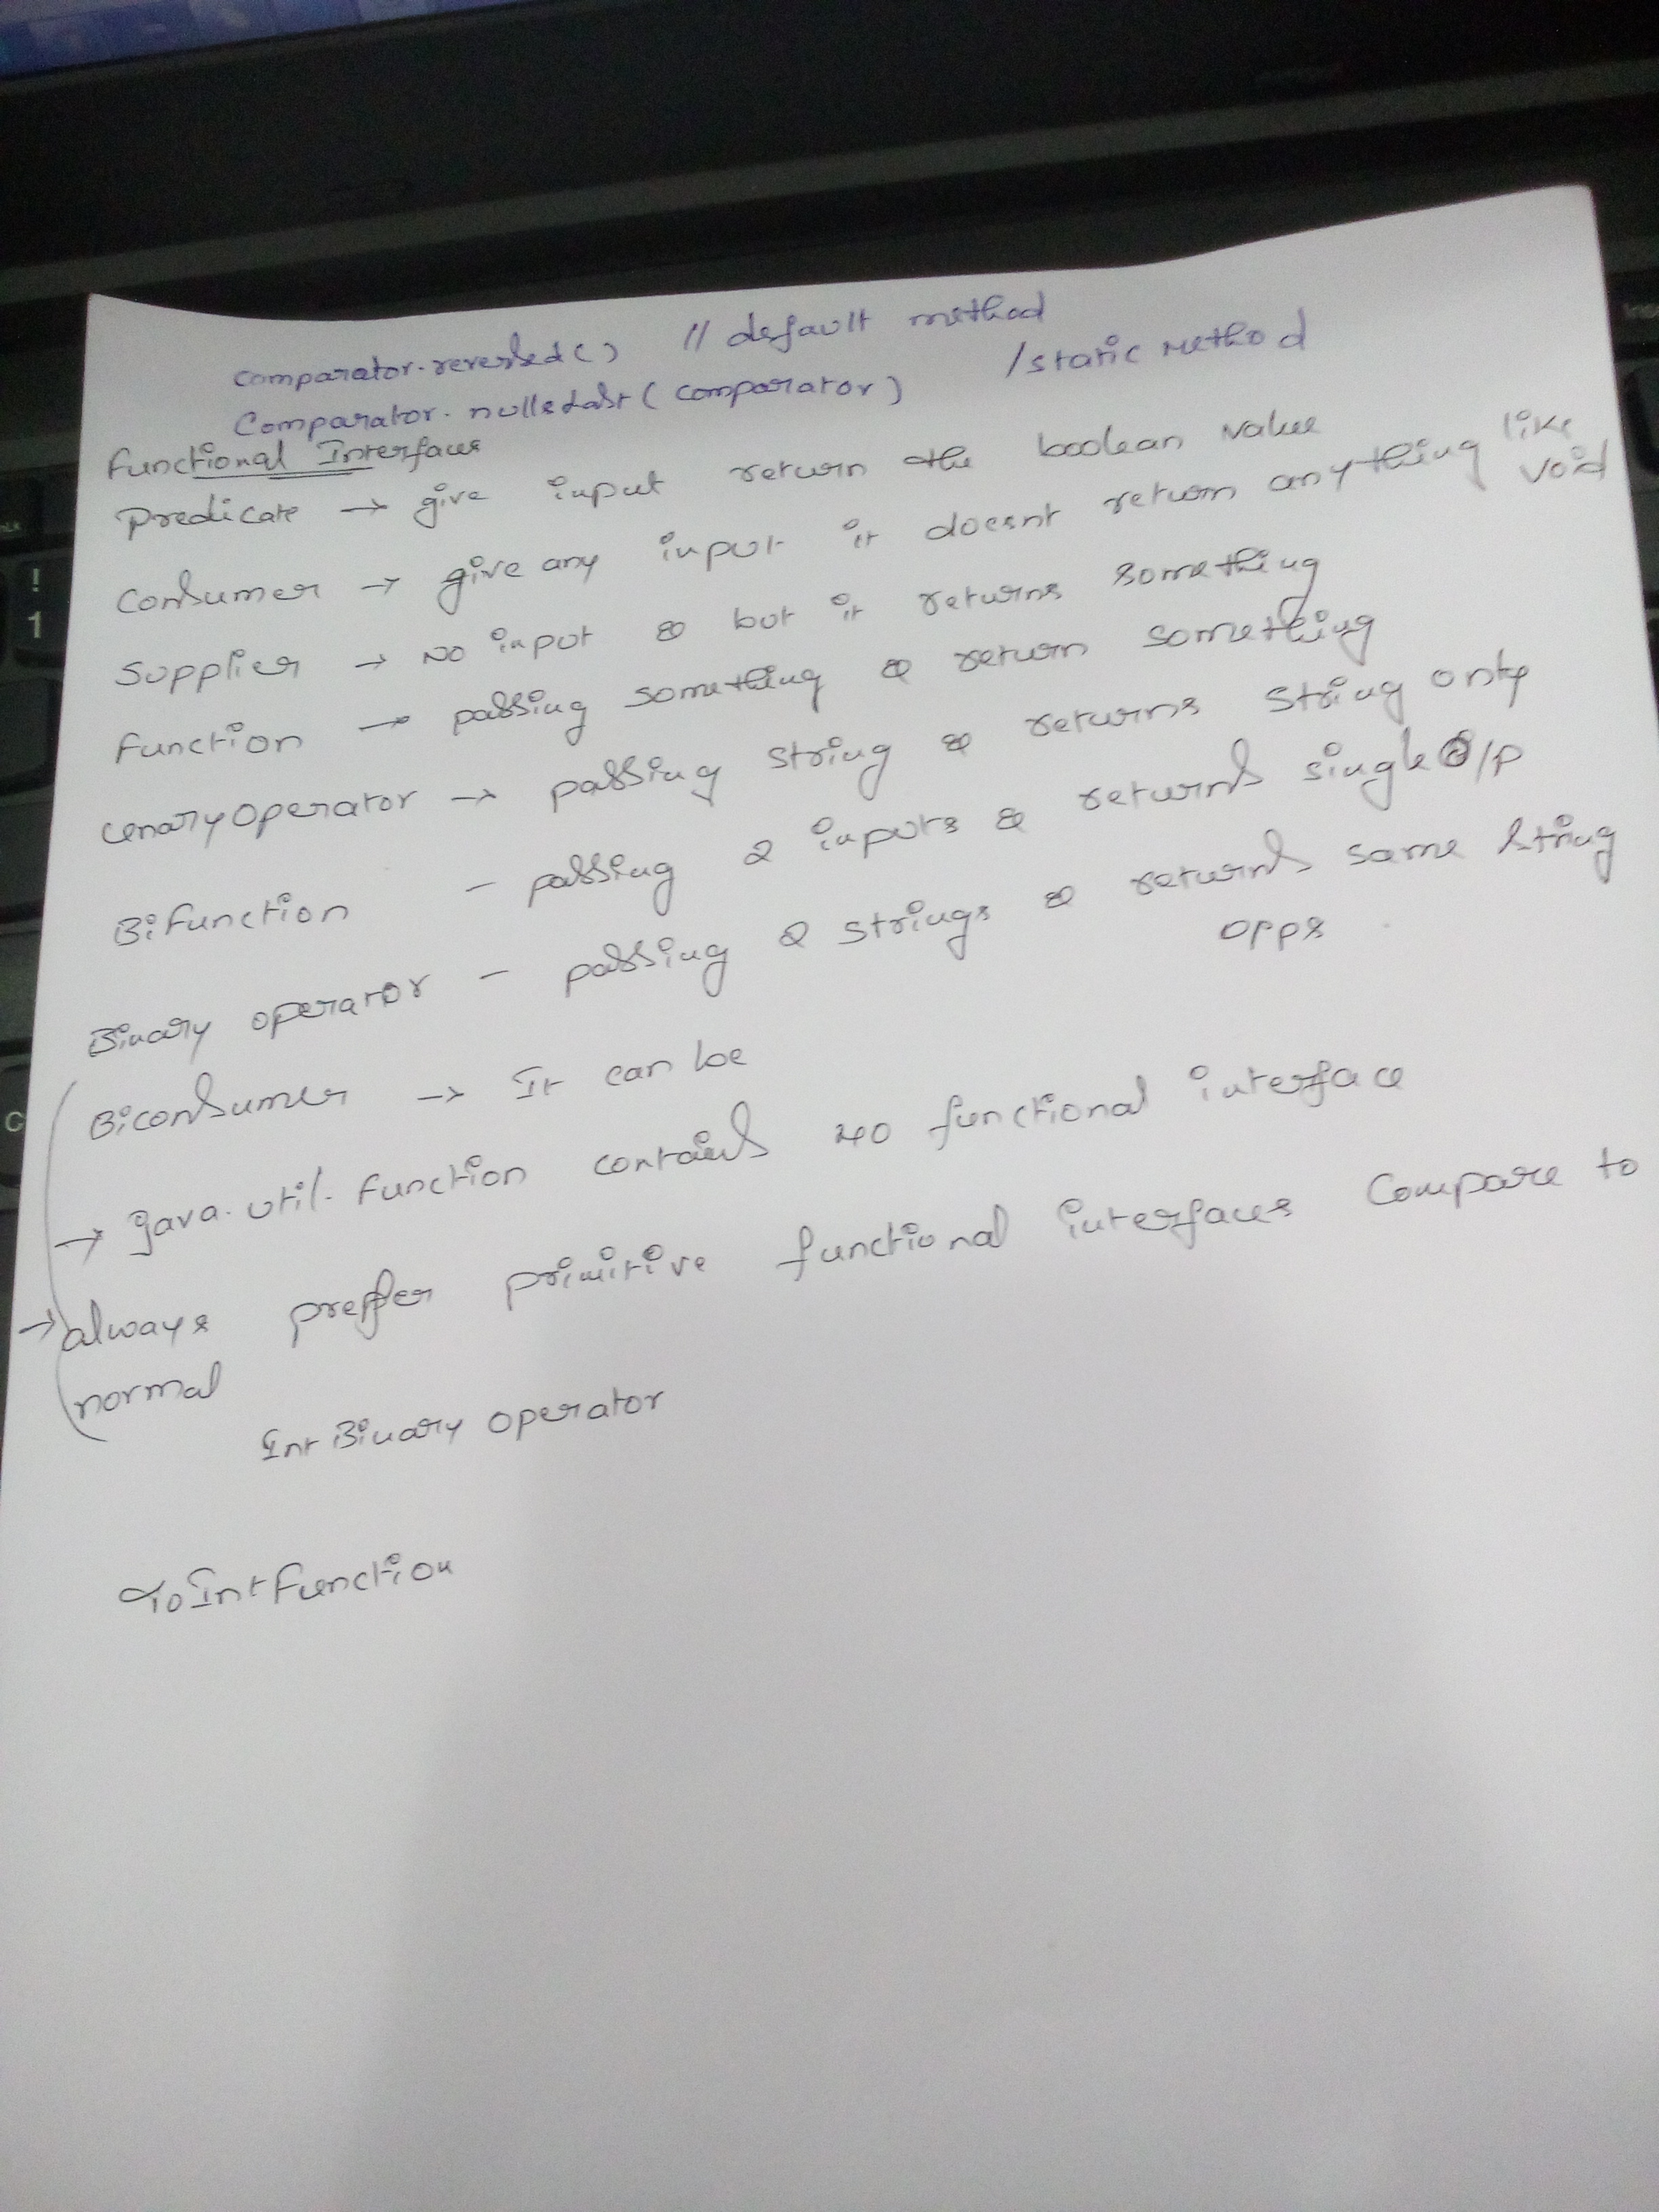 comparator.reversed() // default method
Comparator.nullsLast(comparator) /static Method
Functional Interfaces
Predicate → give input return the boolean value
Consumer → give any input it doesnt return anything like void
Supplier → No input & but it returns something
Function → passing something & return something
UnaryOperator → passing string & returns string only
Bifunction - passing 2 inputs & returns single o/p
Binary operator - passing 2 strings & returns same string
opps
Biconsumer → It can be
→ java.util.function contains 40 functional interface
→ always preffer primitive functional interfaces Compare to
normal
Int Binary operator
ToIntFunction
! 1
C